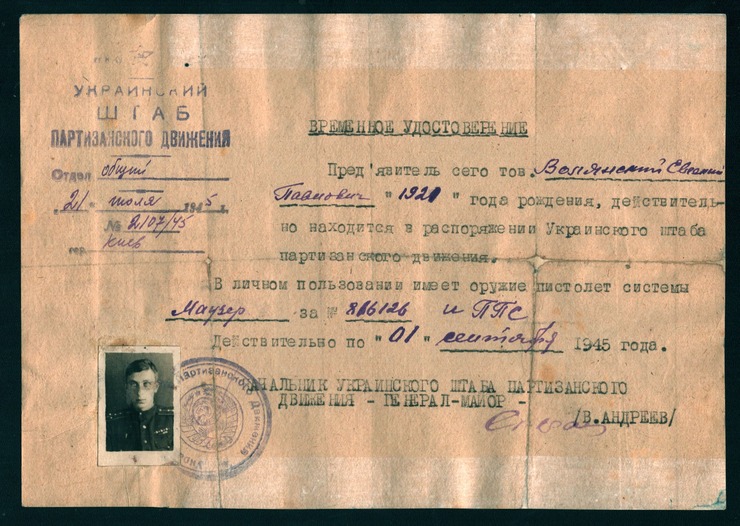 УКРАИНСКИЙ
ШТАБ
ПАРТИЗАНСКОГО ДВИЖЕНИЯ
Отдел общий
"21" июля 1945 г.
№ 2107/45
гор. Киев
ВРЕМЕННОЕ УДОСТОВЕРЕНИЕ
Пред'явитель сего тов. Волянский Евгений
Павлович "1921" года рождения, действитель-
но находится в распоряжении Украинского штаба
партизанского движения.
В личном пользовании имеет оружие пистолет системы
Маузер за № 816126 и ППС
Действительно по "01" сентября 1945 года.
НАЧАЛЬНИК УКРАИНСКОГО ШТАБА ПАРТИЗАНСКОГО
ДВИЖЕНИЯ - ГЕНЕРАЛ-МАЙОР -
/В.АНДРЕЕВ/
Партизанского Движения